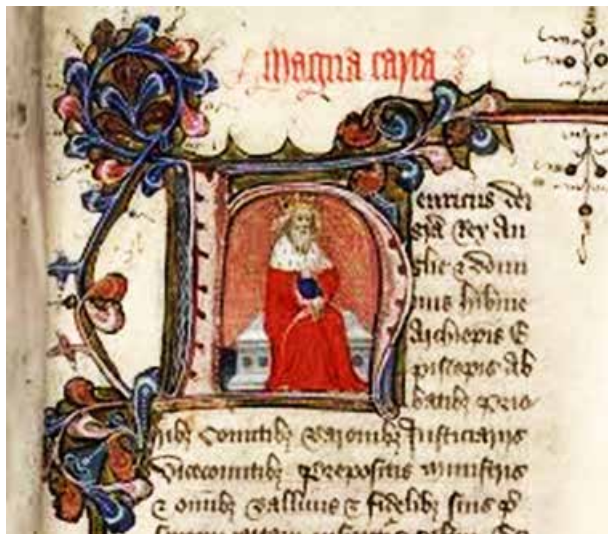 magna carta
enricus dei
gra Rex An
glie & domi
nus hibnie
Archiepis E
piscopis Ab
batibz prio
ribz Comitibz Baronibz Justiciariis
Vicecomitibz prepositis ministris
& omibz Ballivis & fidelibz suis